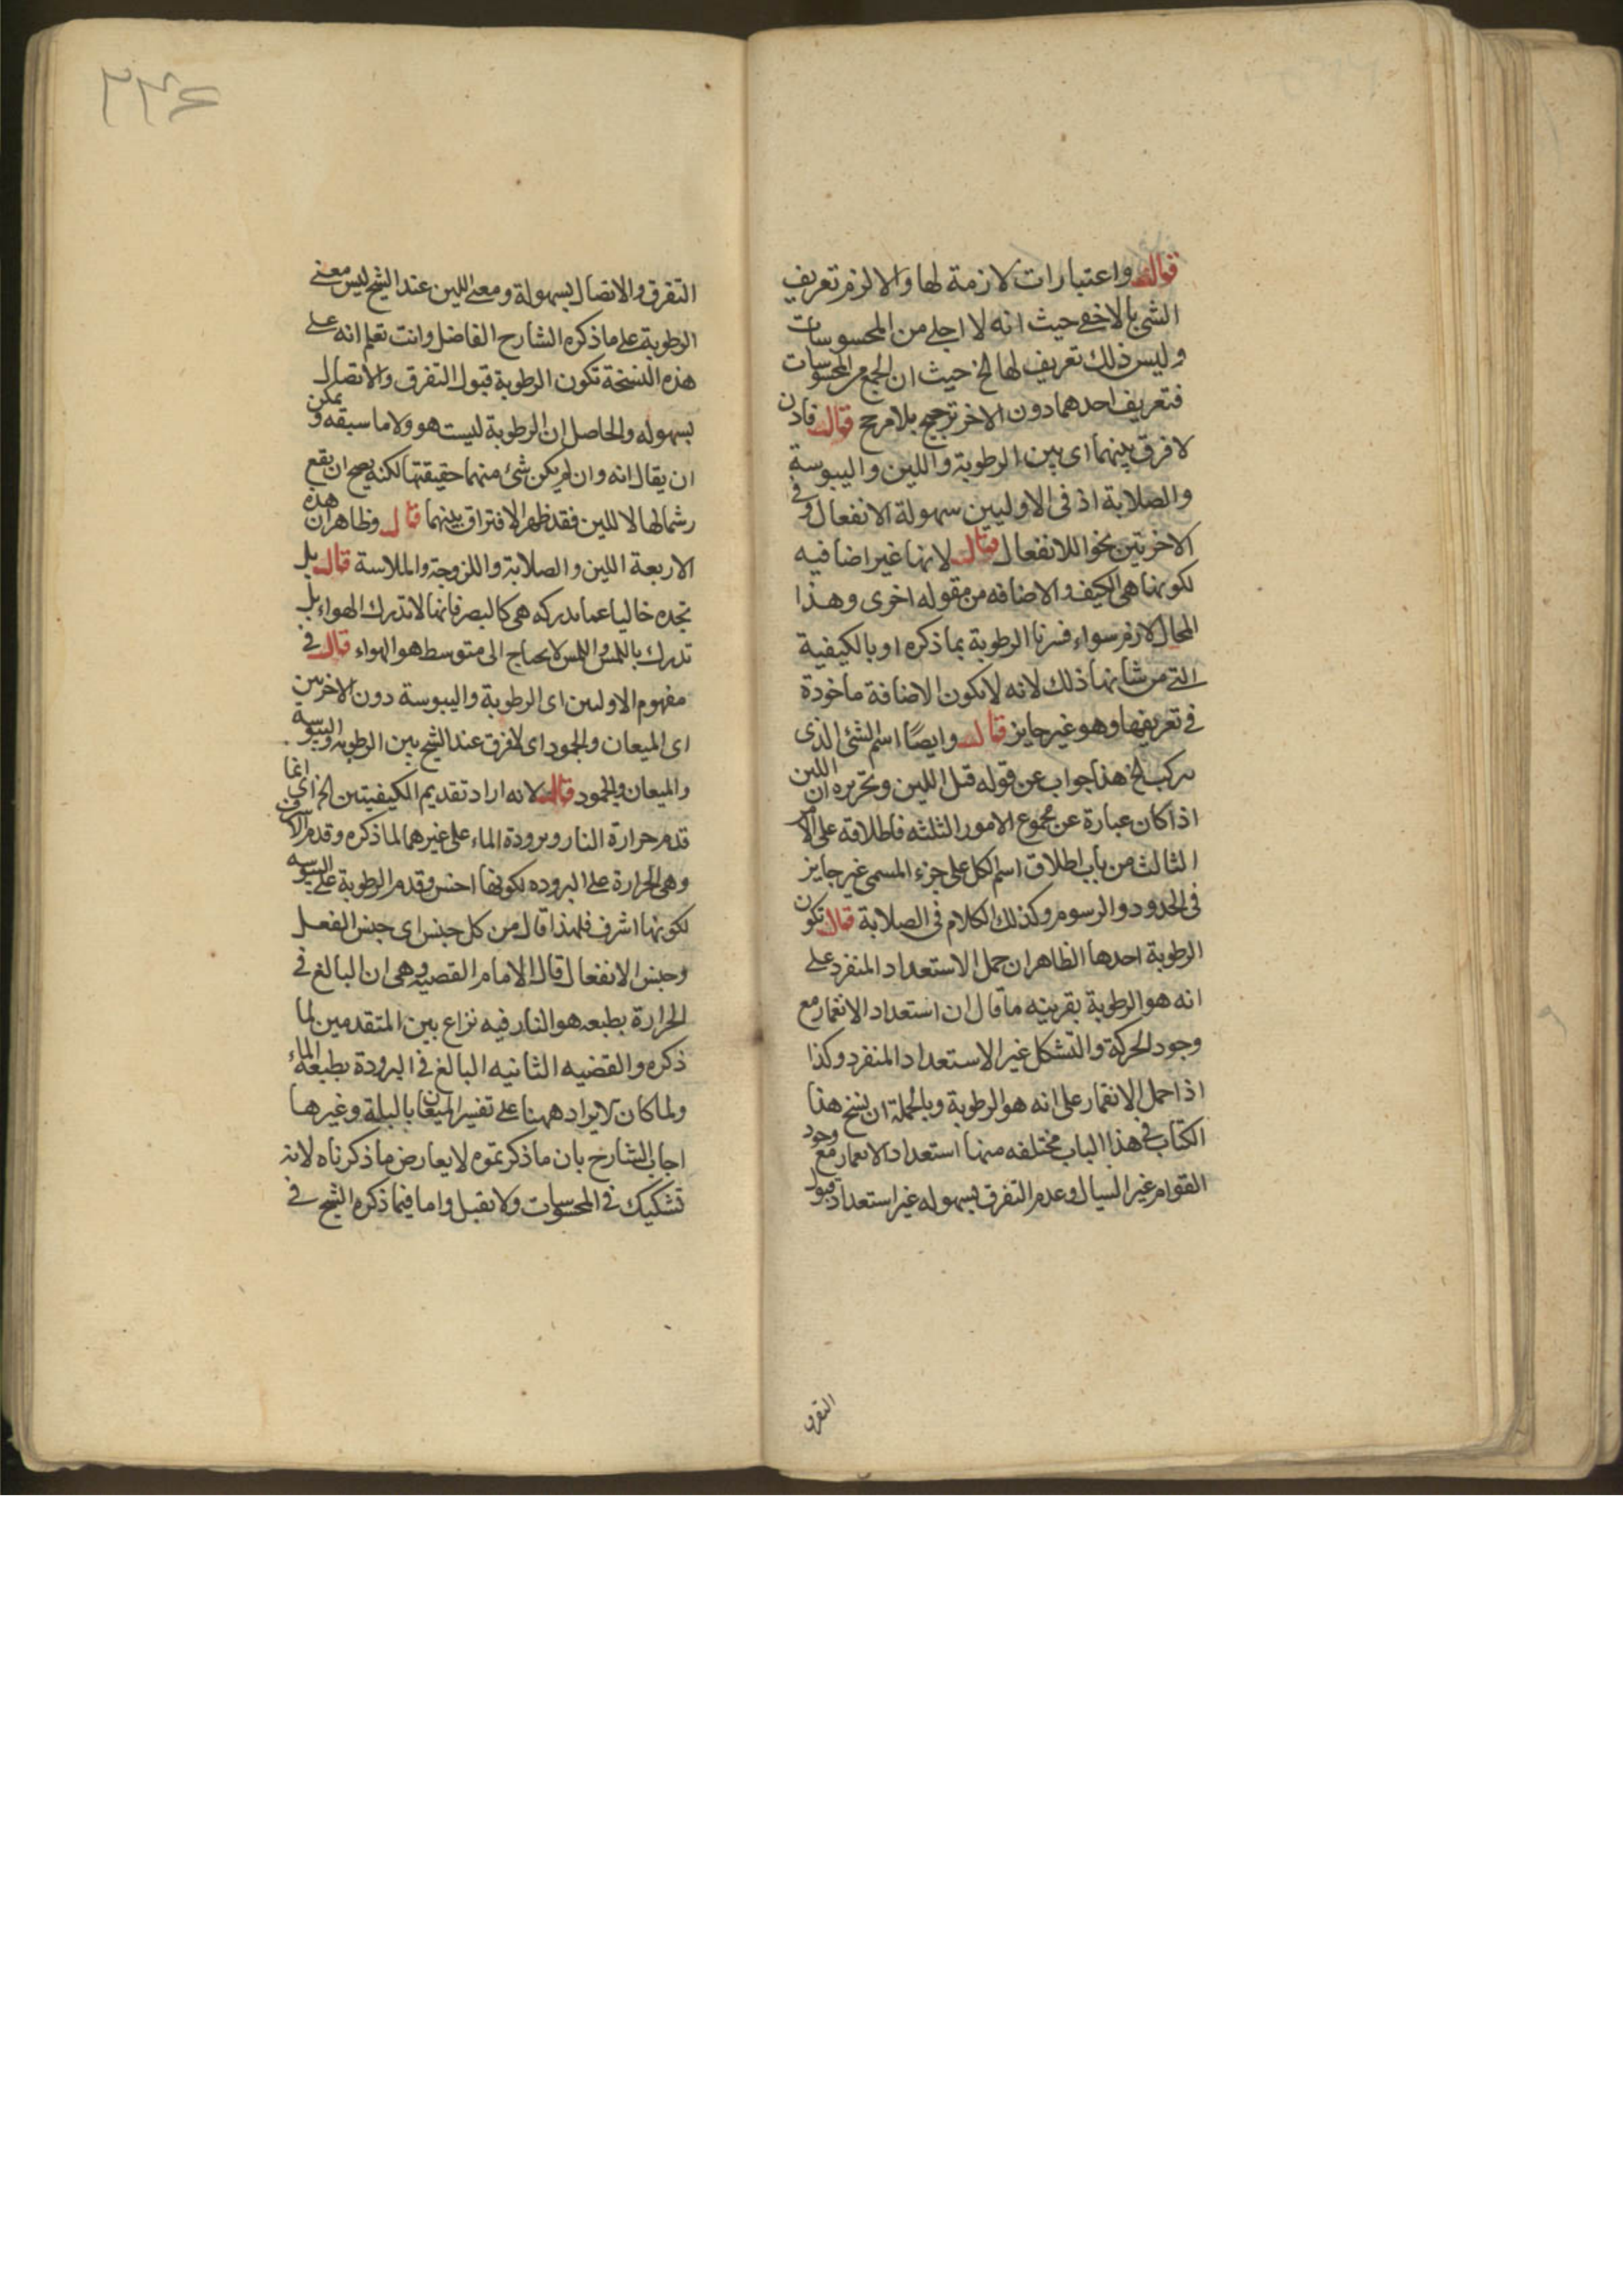 قال واعتبارات لازمة لها والا لزم تعريف
الشئ بالاخفى حيث انه لا اجلى من المحسوسات
وليس ذلك تعريف لها الخ حيث ان الجمع من المحسوسات
فتعريف احدهما دون الاخر ترجيح بلا مرجح قال فاذن
لا فرق بينهما اى بين الرطوبة واللين واليبوسة
والصلابة اذ فى الاوليين سهولة الانفعال وفى
الاخريتين نحو اللاانفعال قال لانها غير اضافيه
لكونها هى الكيف والاضافه من مقوله اخرى وهذا
المحال لازم سواء فسرنا الرطوبة بما ذكره او بالكيفية
التى من شانها ذلك لانه لا يكون الاضافة ماخوذة
فى تعريفها وهو غير جايز قال وايضًا اسم الشئ الذى
يركب الخ هذا جواب عن قوله قبل اللين وتحريره ان اللين
اذا كان عبارة عن مجموع الامور الثلثه فاطلاقه على الامر
الثالث من باب اطلاق اسم الكل على جزء المسمى غير جايز
فى الحدود والرسوم وكذلك الكلام فى الصلابة قال تكون
الرطوبة احدها الظاهر ان حمل الاستعداد المنفرد على
انه هو الرطوبة بقرينه ما قال ان استعداد الانغمار مع
وجود الحركة والتشكل غير الاستعداد المنفرد وكذا
اذا حمل الانغمار على انه هو الرطوبة وبالجملة ان نسخ هذا
الكتاب فى هذا الباب مختلفه منها استعداد الانغمار مع وجود
القوام غير السيال وعدم التفرق بسهوله غير استعداد قبول
التفرق
٢٣٤
التفرق والاتصال بسهولة ومعنى اللين عند الشيخ ليس معنى
الرطوبة على ما ذكره الشارح الفاضل وانت تعلم انه على
هذه النسخة تكون الرطوبة قبول التفرق والاتصال
بسهوله والحاصل ان الرطوبة ليست هو ولا ما سبقه ويمكن
ان يقال انه وان لم يكن شئ منهما حقيقتها لكنه يصح ان يقع
رسما لها لا للين فقد ظهر الافتراق بينهما قال وظاهر ان هذه
الاربعة اللين والصلابة واللزوجة والملاسة قال بل
نجده خاليا عما يدركه هى كالبصر فانها لا تدرك الهواء بل
تدرك باللمس واللمس لا يحتاج الى متوسط هو الهواء قال فى
مفهوم الاوليين اى الرطوبة واليبوسة دون الاخريين
اى الميعان والجمود اى لا فرق عند الشيخ بين الرطوبه واليبوسه
والميعان والجمود قال لانه اراد تقديم الكيفيتين الخ اى انما
قدم حرارة النار وبرودة الماء على غيرهما لما ذكره وقدم الاشرف
وهى الحرارة على البروده لكونها احسن وقدم الرطوبة على اليبوسه
لكونها اشرف فلهذا قال من كل جنس اى جنس الفعل
وجنس الانفعال قال الامام القضيه وهى ان البالغ فى
الحرارة بطبعه هو النار فيه نزاع بين المتقدمين لما
ذكره والقضيه الثانيه البالغ فى البرودة بطبعه الماء
ولما كان لايراد ههنا على تفسير الميعان بالبلة وغيرها
اجاب الشارح بان ما ذكرتموه لا يعارض ما ذكرناه لانه
تشكيك فى المحسوسات ولا تقبل واما فيما ذكره الشيخ فى